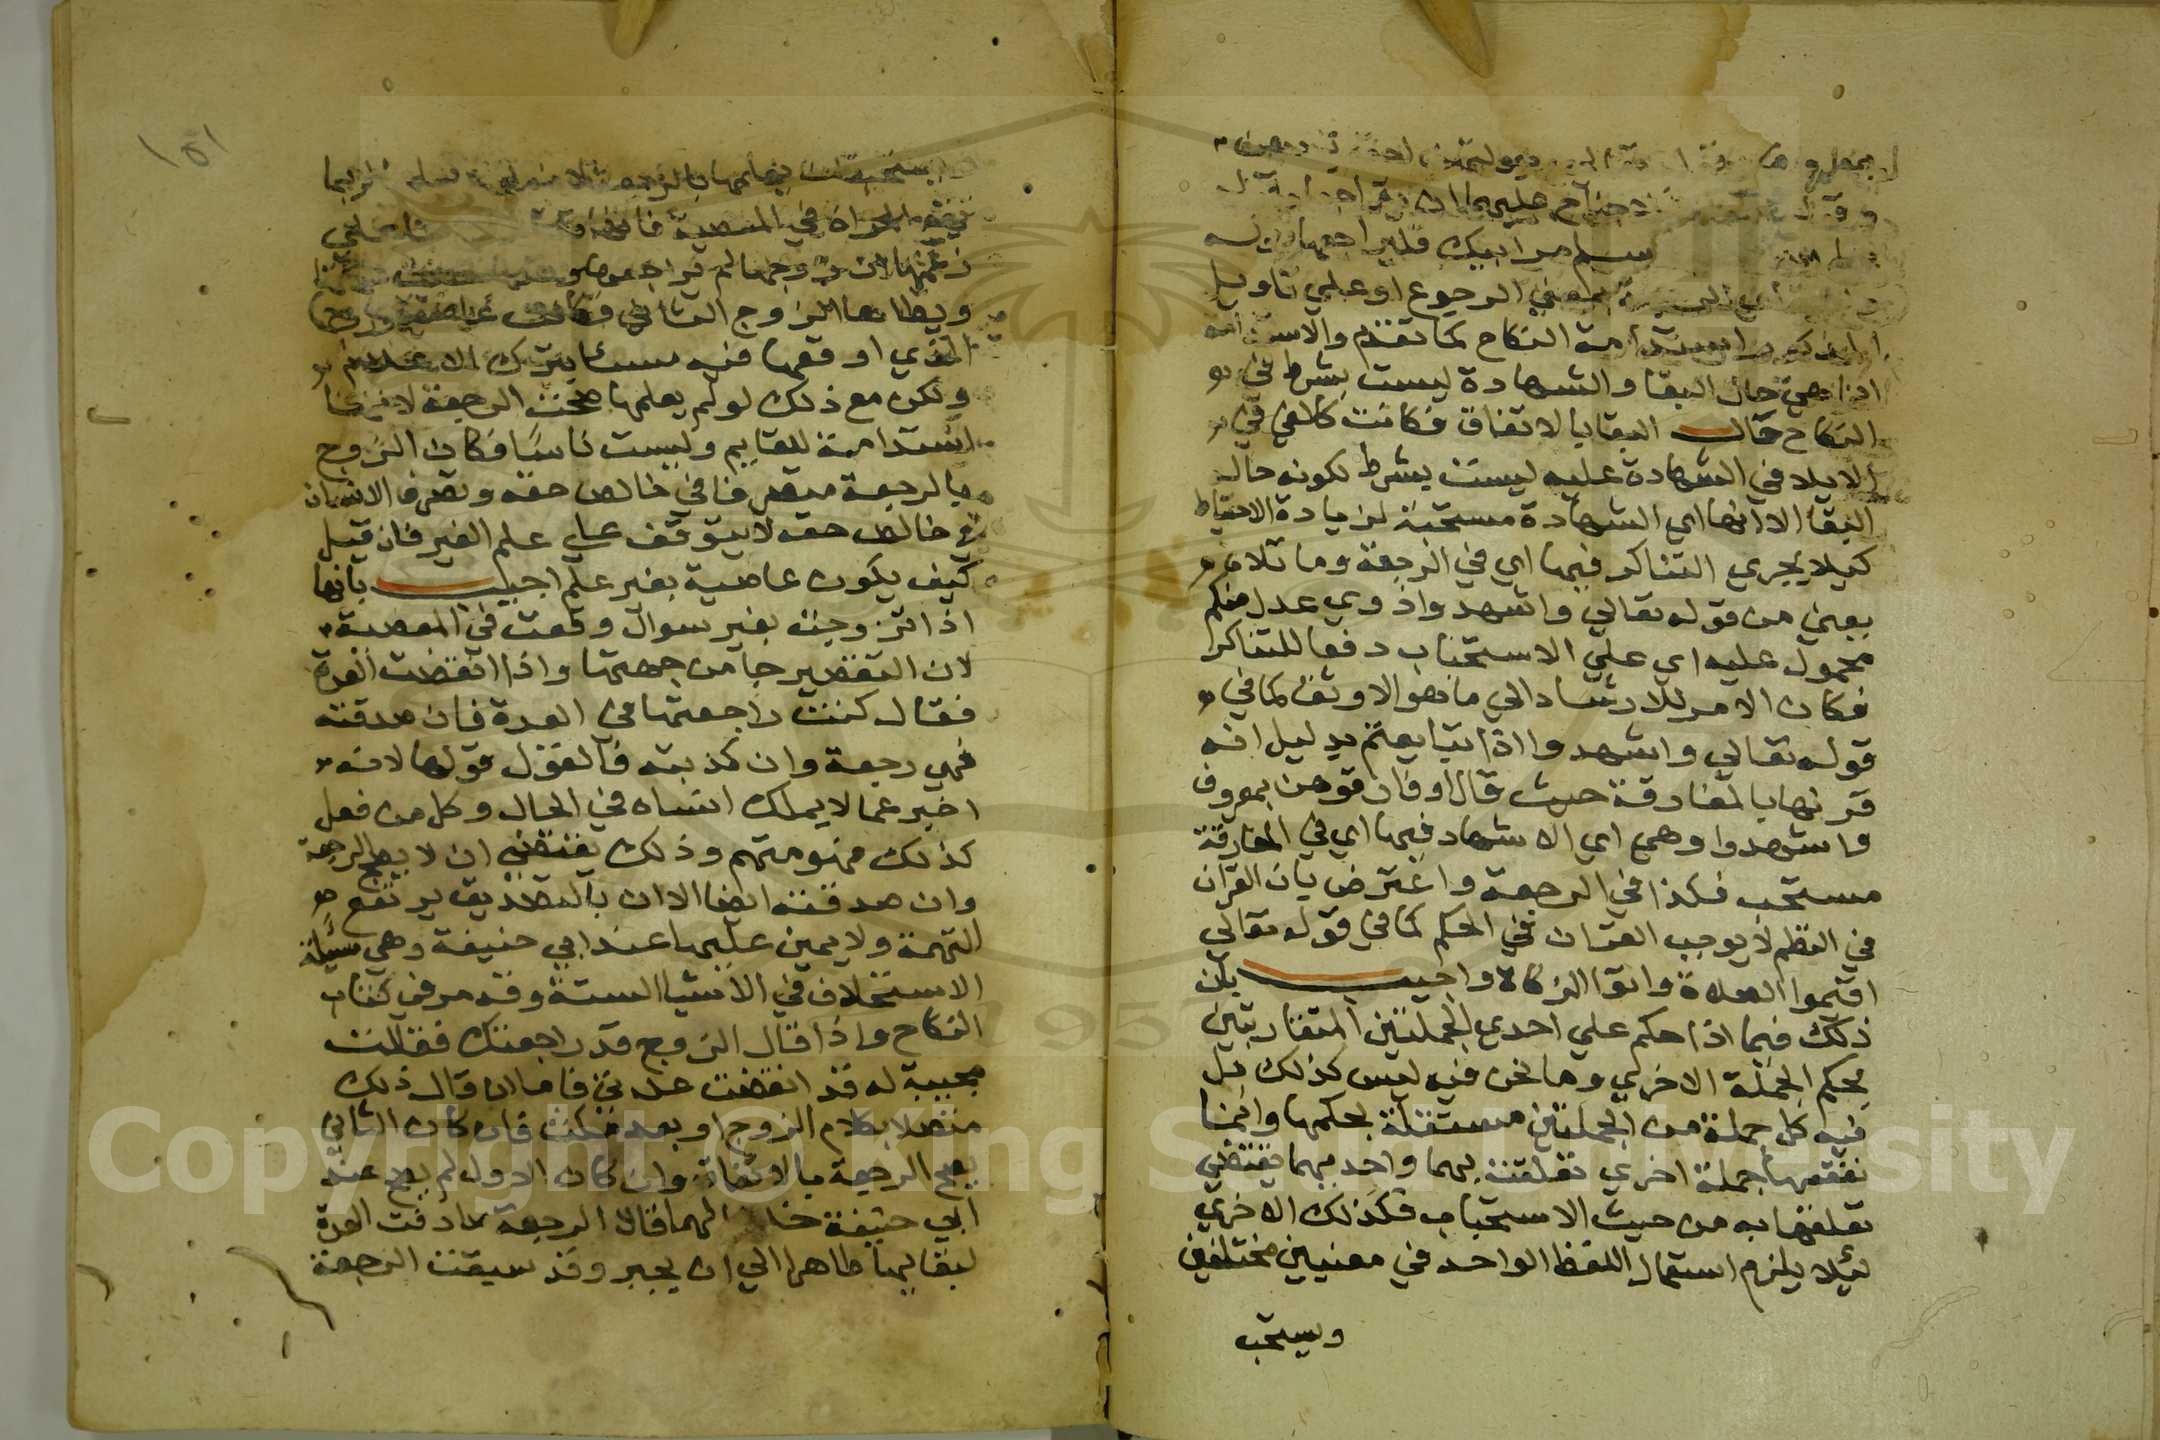 سلم مر ابنك فليراجعها
بمعني الرجوع او علي تاويل
استدامة النكاح كما تقدم والاستدامة
انما هي حال البقا والشهادة ليست بشرط في
النكاح حالـــ البقا بالاتفاق فكانت كالفي في
الايلا في الشهادة عليه ليست بشرط لكونه حال
البقا الا انها اي الشهادة مستحبة لزيادة الاحتياط
كيلا يجري التناكر فيها اي في الرجعة وما تلاه
يعني من قوله تعالي واشهدوا ذوي عدل منكم
محمول عليه اي علي الاستحباب دفعا للتناكر
فكان الامر للارشاد الي ما هو الاوثق كما في
قوله تعالي واشهدوا اذا تبايعتم بدليل انه
قرنها بالمفارقة حيث قال او فارقوهن بمعروف
واشهدوا وهي اي الاشهاد فيها اي في المفارقة
مستحب فكذا في الرجعة واعترض بان القران
في النظم لا يوجب القران في الحكم كما في قوله تعالي
اقيموا الصلاة واتوا الزكاة واجيبـــ بان
ذلك فيما اذا حكم علي احدي الجملتين المتقاربتين
بحكم الجملة الاخري وما نحن فيه ليس كذلك بل
فيه كل جملة من الجملتين مستقلة بحكمها وانما
تعقبها جملة اخري تعلقت بهما واحد بهما يقتضي
تعلقها به من حيث الاستحباب فكذلك الاخري
ليلا يلزم استعمال اللفظ الواحد في معنيين مختلفين
ويستحب
١٥١
يستحب ان يعلمها بالرجعة
المراة في المعصية
زعمها ان زوجها لم يراجعها
ويطاها الزوج الثاني فكانت عاصية
الذي اوقعها فيه مسيا بترك الاعلام
ولكن مع ذلك لو لم يعلمها صحت الرجعة لانها
استدامة للقايم وليست ناسا فكان الزوج
بالرجعة متصرفا في خالص حقه وتصرف الانسان
في خالص حقه لا يتوقف علي علم الغير فان قيل
كيف يكون عاصية بغير علم اجيبـــ بانها
اذا تزوجت بغير سوال وقعت في المعصية
لان التقصير جا من جهتها واذا انقضت العدة
فقال كنت راجعتها في العدة فان صدقته
فهي رجعة وان كذبته فالقول قولها لانه
اخبر عما لا يملك انشاه في الحال وكل من فعل
كذلك فهو متهم وذلك يقتضي ان لا يصح الرجعة
وان صدقته ايضا الا ان بالتصديق يرتفع
التهمة ولا يمين عليها عند ابي حنيفة وهي مسيلة
الاستحلاف في الاشيا الستة وقد مر في كتاب
النكاح واذا قال الزوج قد راجعتك فقالت
مجيبة له قد انقضت عدتي فاما ان قال ذلك
متصلا بكلام الزوج او بعد سكت فان كان الثاني
يصح الرجعة بالاتفاق وان كان الاول لم يصح عند
ابي حنيفة خلافا لهما قالا الرجعة صادفت العدة
لبقايها ظاهرا الي ان يخبر وقد سبقت الرجعة
Copyright © King Saud University
1957